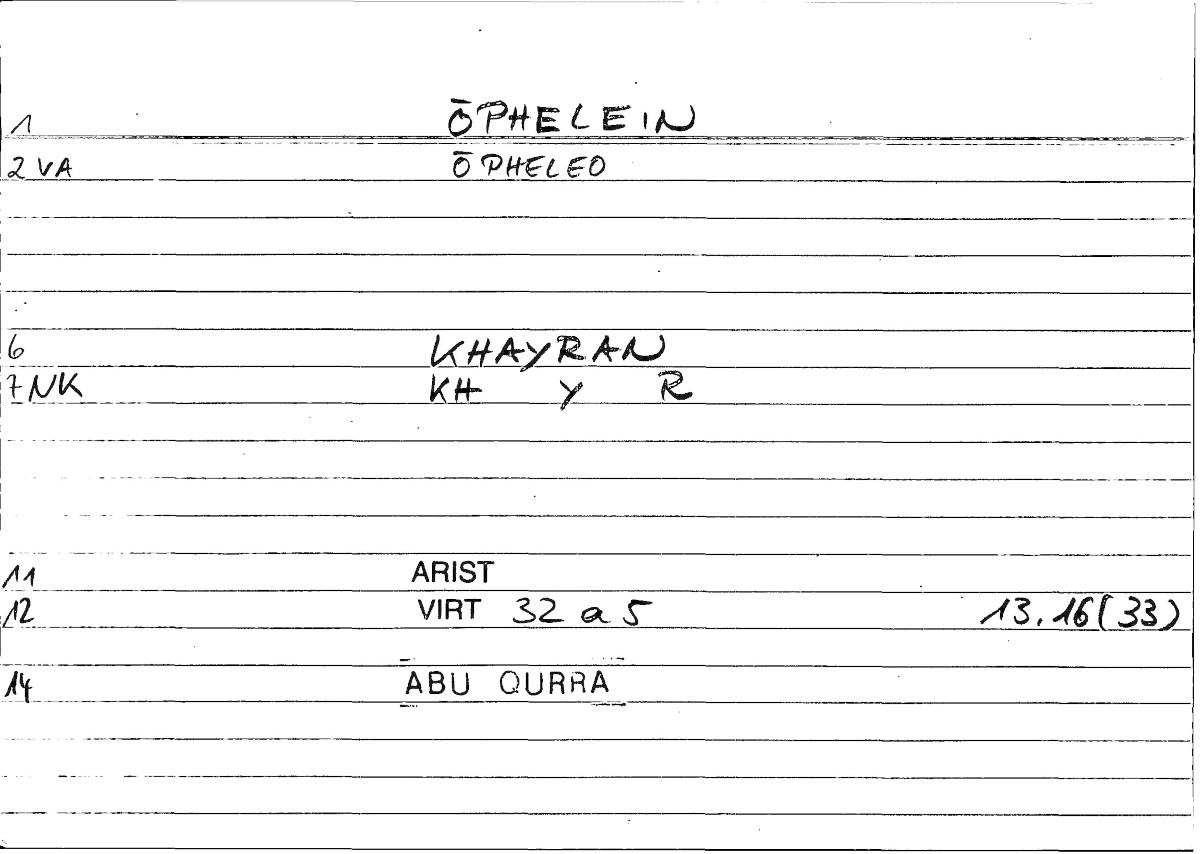 1 ŌPHELEIN
2 VA ŌPHELEO
6 KHAYRAN
7 NK KH Y R
11 ARIST
12 VIRT 32 a 5 13.16(33)
14 ABU QURRA